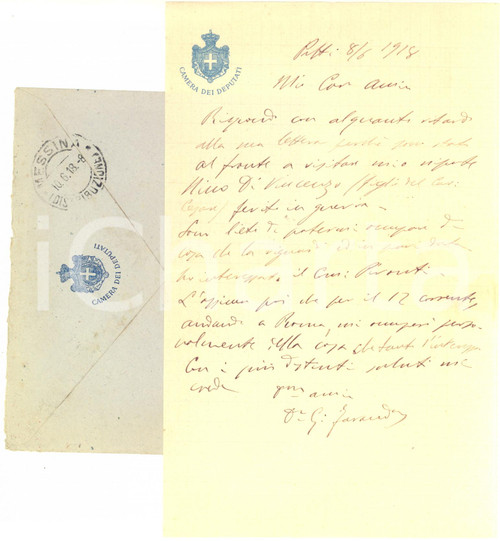 CAMERA DEI DEPUTATI
Patti 8/6 1918
Mio Caro Amico
Rispondo con alquanto ritardo
alla sua lettera perché sono stato
al fronte a visitare mio nipote
Nino Di Vincenzo (figlio del Cav:
ferito in guerra —
Sono lieto di potermi occupare di
cosa che la riguardi ed in pari
ho interessato il Cav:
L'assicuro poi che per il 12 corrente,
andando a Roma, mi occuperò perso
nalmente della cosa che tanto l'interessa
Con i più distinti saluti mi
creda
amico
Dr G.
MESSINA
10.6.18.-8
(DISTRIBUZIONE)
CAMERA DEI DEPUTATI